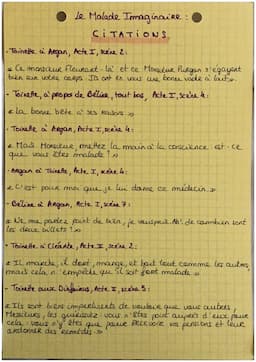 Le Malade Imaginaire :
CITATIONS
- Toinette à Argan, Acte I, scène 2 :
« Ce monsieur Fleurant-là et ce Monsieur Purgon s'égayent
bien sur votre corps. Ils ont en vous une bonne vache à lait ».
- Toinette, à propos de Béline, tout bas, Acte I, scène 4 :
« La bonne bête a ses raisons »
- Toinette à Argan, Acte I, scène 4 :
« Mais Monsieur, mettez la main à la conscience : est-ce
que vous êtes malade ? »
- Argan à Toinette, Acte I, scène 4 :
« C'est pour moi que je lui donne ce médecin »
- Béline à Argan, Acte I, scène 7 :
« Ne me parlez point de bien, je vous prie. Ah ! de combien sont
les deux billets ? »
- Toinette à Cléante, Acte II, scène 2 :
« Il marche, il dort, mange, et boit tout comme les autres,
mais cela n'empêche qu'il soit fort malade »
- Toinette aux Diafoirus, Acte II, scène 5 :
« Ils sont bien impertinents de vouloir que vous autres,
Messieurs, les guérissiez : vous n'êtes point auprès d'eux pour
cela ; vous n'y êtes que pour recevoir vos pensions et leur
ordonner des remèdes »